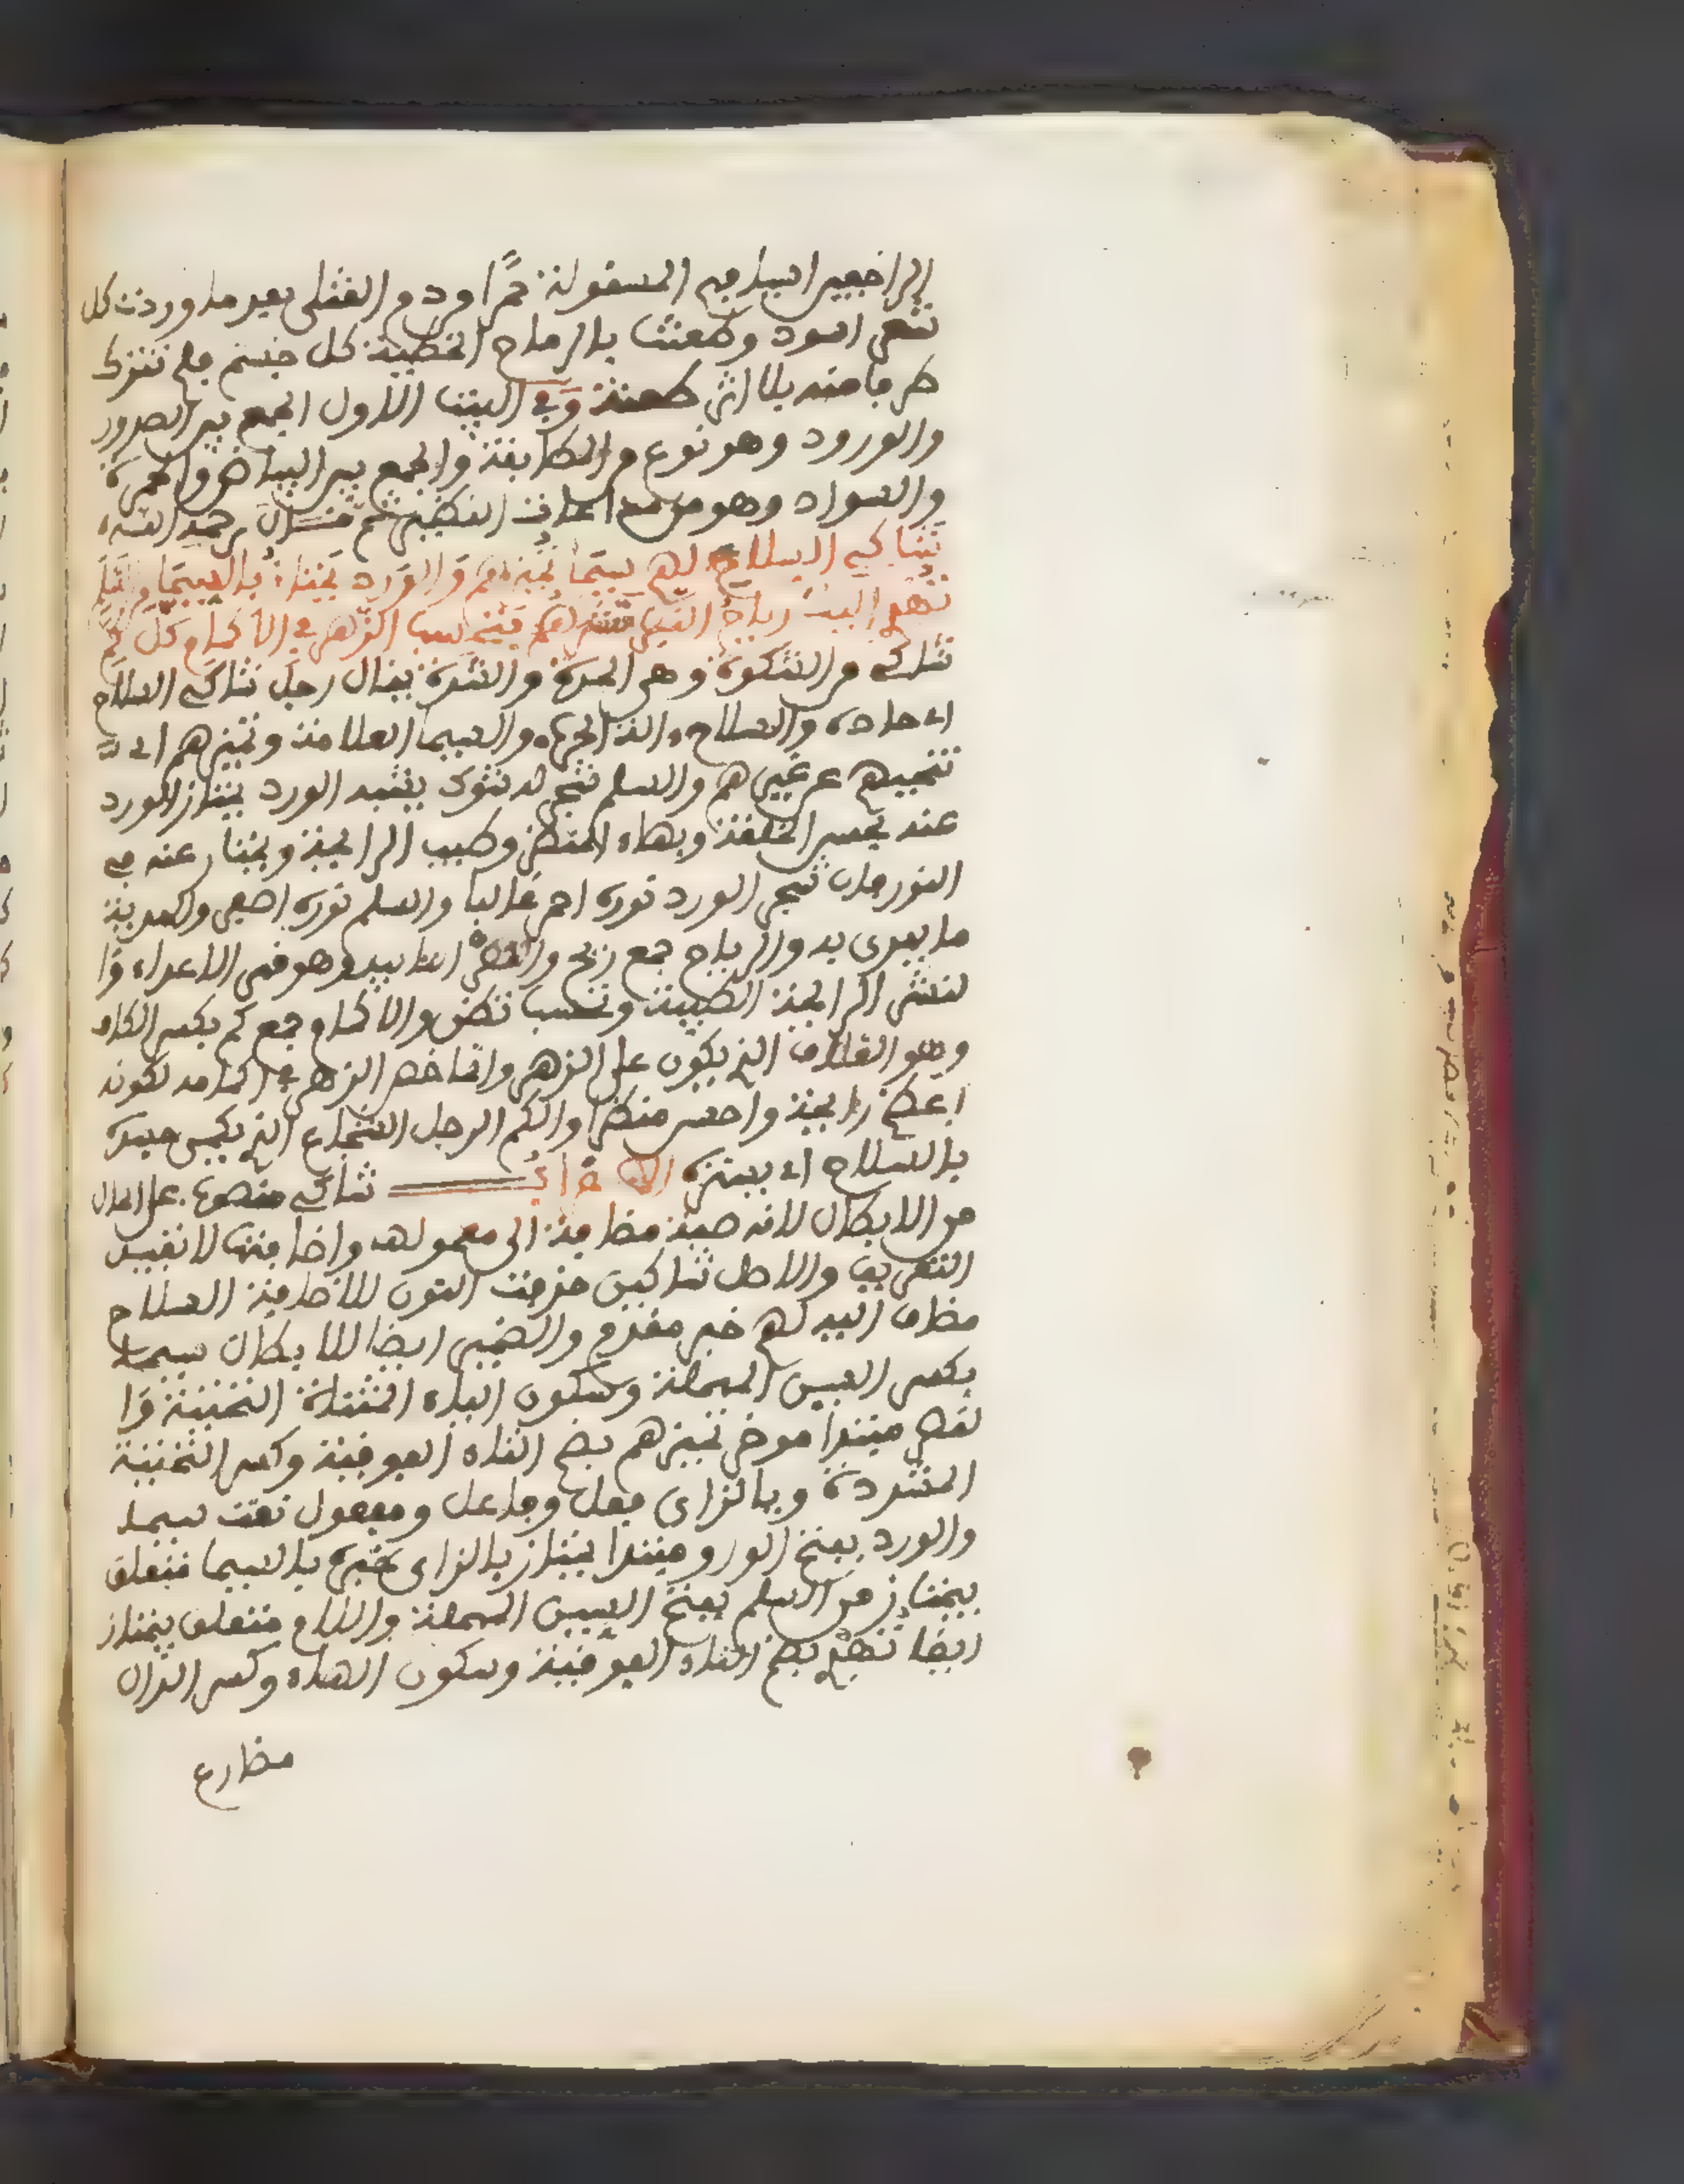 الراجعين السيوف المسقولة حمرا من دم القتلى بعد ما وردت كل
شعر اسود وطعنت بالرماح الخطية كل جسم فلم تترك
حرفا منه بلا اثر طعنة وفي البيت الاول الجمع بين الصدور
والورود وهو نوع من المطابقة والجمع بين البياض والحمرة
والسواد وهو من مراعاة النظير ثم قال رحمه الله
شاكي السلاح لهم سيما تميزهم والورد يمتاز بالسيما من السلم
تهدي اليك رياح النصر نشرهم فتحسب الزهر في الاكمام كل كمي
شاكي من الشوكة وهي الحدة والشدة يقال رجل شاكي السلاح
اي حاده والسلاح الة الحرب والسيما العلامة وتميزهم اي
تنحيهم عن غيرهم والسلم شجر له شوك يشبه الورد يمتاز الورد
عنه بحسن الخلقة وبهاء المنظر وطيب الرايحة ويمتاز عنه في
النور فان شجر الورد نوره احمر غالبا والسلم نوره اصفر والهدية
ما يهدى به والرياح جمع ريح والنصر التاييد وهو قهر الاعداء وا
لنشر الرايحة الطيبة وتحسب تظن والاكمام جمع كم بكسر الكاف
وهو الغلاف الذي يكون على الزهر وانما خص الزهر في اكمامه لكونه
اعطر رايحة واحسن منظرا والكمي الرجل الشجاع الذي يكمي جسده
بالسلاح اي يستره الاعراب شاكي منصوب على الحال
من الابطال لانه صفة مضافة الى معمولها واضافتها لا تفيد
التعريف والاصل شاكين حذفت النون للاضافة السلاح
مضاف اليه لهم خبر مقدم والضمير ايضا للابطال سيما
بكسر السين المهملة وسكون الياء المثناة التحتية وا
لقصر مبتدا موخر تميزهم بضم التاء الفوقية وكسر التحتية
المشددة وبالزاي فعل وفاعل ومفعول نعت سيما
والورد بفتح الواو مبتدا يمتاز بالزاي خبره بالسيما متعلق
بيمتاز من السلم بفتح السين المهملة واللام متعلق بيمتاز
ايضا تهدي بضم التاء الفوقية وسكون الهاء وكسر الدال
مضارع